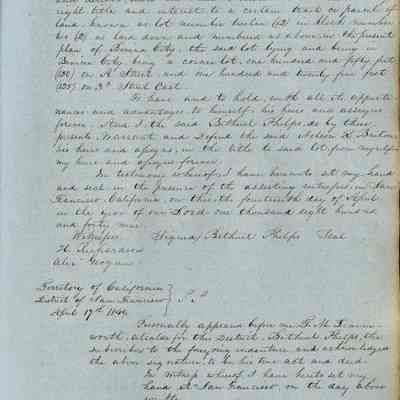 right title and interest to a certain tract or parcel of
land known as lot number twelve (12) in block number
two (2) as laid down and numbered as above in the present
plan of Benicia City, the said lot lying and being in
Benicia City being a corner lot, one hundred and fifty feet
(150) on K Street, and one hundred and twenty five feet
(125) on 3rd Street East.
To have and to hold, with all its appurte-
nances and advantages, to himself, his heirs and assigns
forever. And I the said Bethuel Phelps, do by these
presents, Warrant and Defend the said
his heirs and assigns, in the title to said lot, from myself
my heirs and assigns forever.
In testimony whereof, I have hereunto set my hand
and seal in the presence of the attesting witnesses, in San
Francisco, California, on this, the fourteenth day of April
in the year of our Lord one thousand eight hundred
and forty nine.
Witnesses Signed Bethuel Phelps Seal
H. Richardson
Alex Grogan
Territory of California
District of San Francisco } S.S
April 17th 1849
Personally appeared before me
worth, alcalde for this District, Bethuel Phelps, the
subscriber to the foregoing indenture and acknowledged
the above signature, to be his true act and deed.
In witness whereof I have hereto set my
hand At San Francisco on the day above